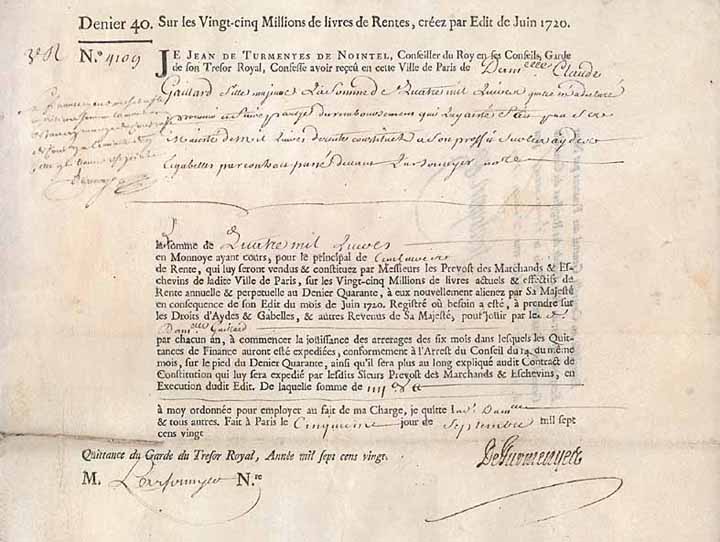 Denier 40. Sur les Vingt-cinq Millions de livres de Rentes, créez par Edit de Juin 1720.
N.º 4109 JE JEAN DE TURMENYES DE NOINTEL, Conseiller du Roy en ses Conseils, Garde
de son Tresor Royal, Confesse avoir reçeu en cette Ville de Paris de Dam.elle Claude
Gaillard fille majeure La somme de Quatre mil Livres
constituez a son proffit sur les aydes et
gabelles par contrat passé devant notre
la somme de Quatre mil Livres
en Monnoye ayant cours, pour le principal de Cent livres
de Rente, qui luy seront vendus & constituez par Messieurs les Prevost des Marchands & Es-
chevins de ladite Ville de Paris, sur les Vingt-cinq Millions de livres actuels & effectifs de
Rente annuelle & perpetuelle au Denier Quarante, à eux nouvellement alienez par Sa Majesté
en consequence de son Edit du mois de Juin 1720. Registré où besoin a esté, à prendre sur
les Droits d'Aydes & Gabelles, & autres Revenus de Sa Majesté, pour jouir par le
Dam.elle Gaillard
par chacun an, à commencer la jouissance des arrerages des six mois dans lesquels les Quit-
tances de Finance auront esté expediées, conformement à l'Arrest du Conseil du 14. du même
mois, sur le pied du Denier Quarante, ainsi qu'il sera plus au long expliqué audit Contract de
Constitution qui luy sera expedié par lesdits Sieurs Prevost des Marchands & Eschevins, en
Execution dudit Edit. De laquelle somme de
à moy ordonnée pour employer au fait de ma Charge, je quitte lad. Dam.elle
& tous autres. Fait à Paris le Cinquieme jour de Septembre mil sept
cens vingt
Quittance du Garde du Tresor Royal, Année mil sept cens vingt.
DeTurmenyes
M. N.re